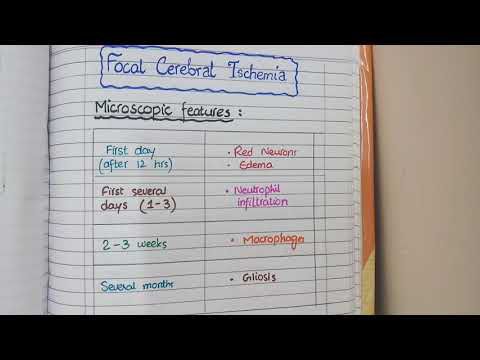 Focal Cerebral Ischemia
Microscopic features :
First day
(after 12 hrs)
• Red Neurons
• Edema
First several
days (1-3)
• Neutrophil
infiltration
2-3 weeks
• Macrophages
Several months
• Gliosis